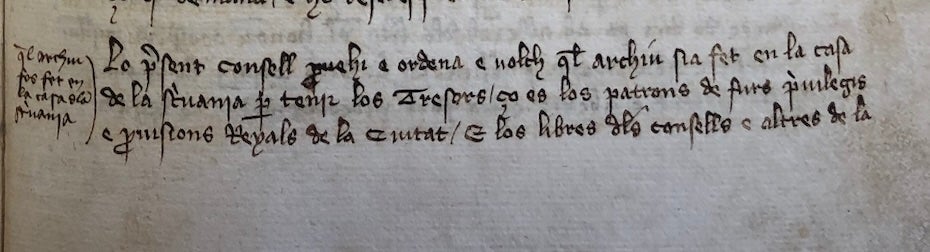 q̄l archiu
fos fet en
la casa dla
sc̀uania
Lo p̄sent consell ꝓuehi e ordena e volch q̄l archiu sia fet en la casa
de la sc̀uania ꝑ tenir los Tresors / ço es los patrons de furs p̀uilegis
e ꝓuisions Reyals de la Ciutat / E los libres dl̄s consells e altres de la